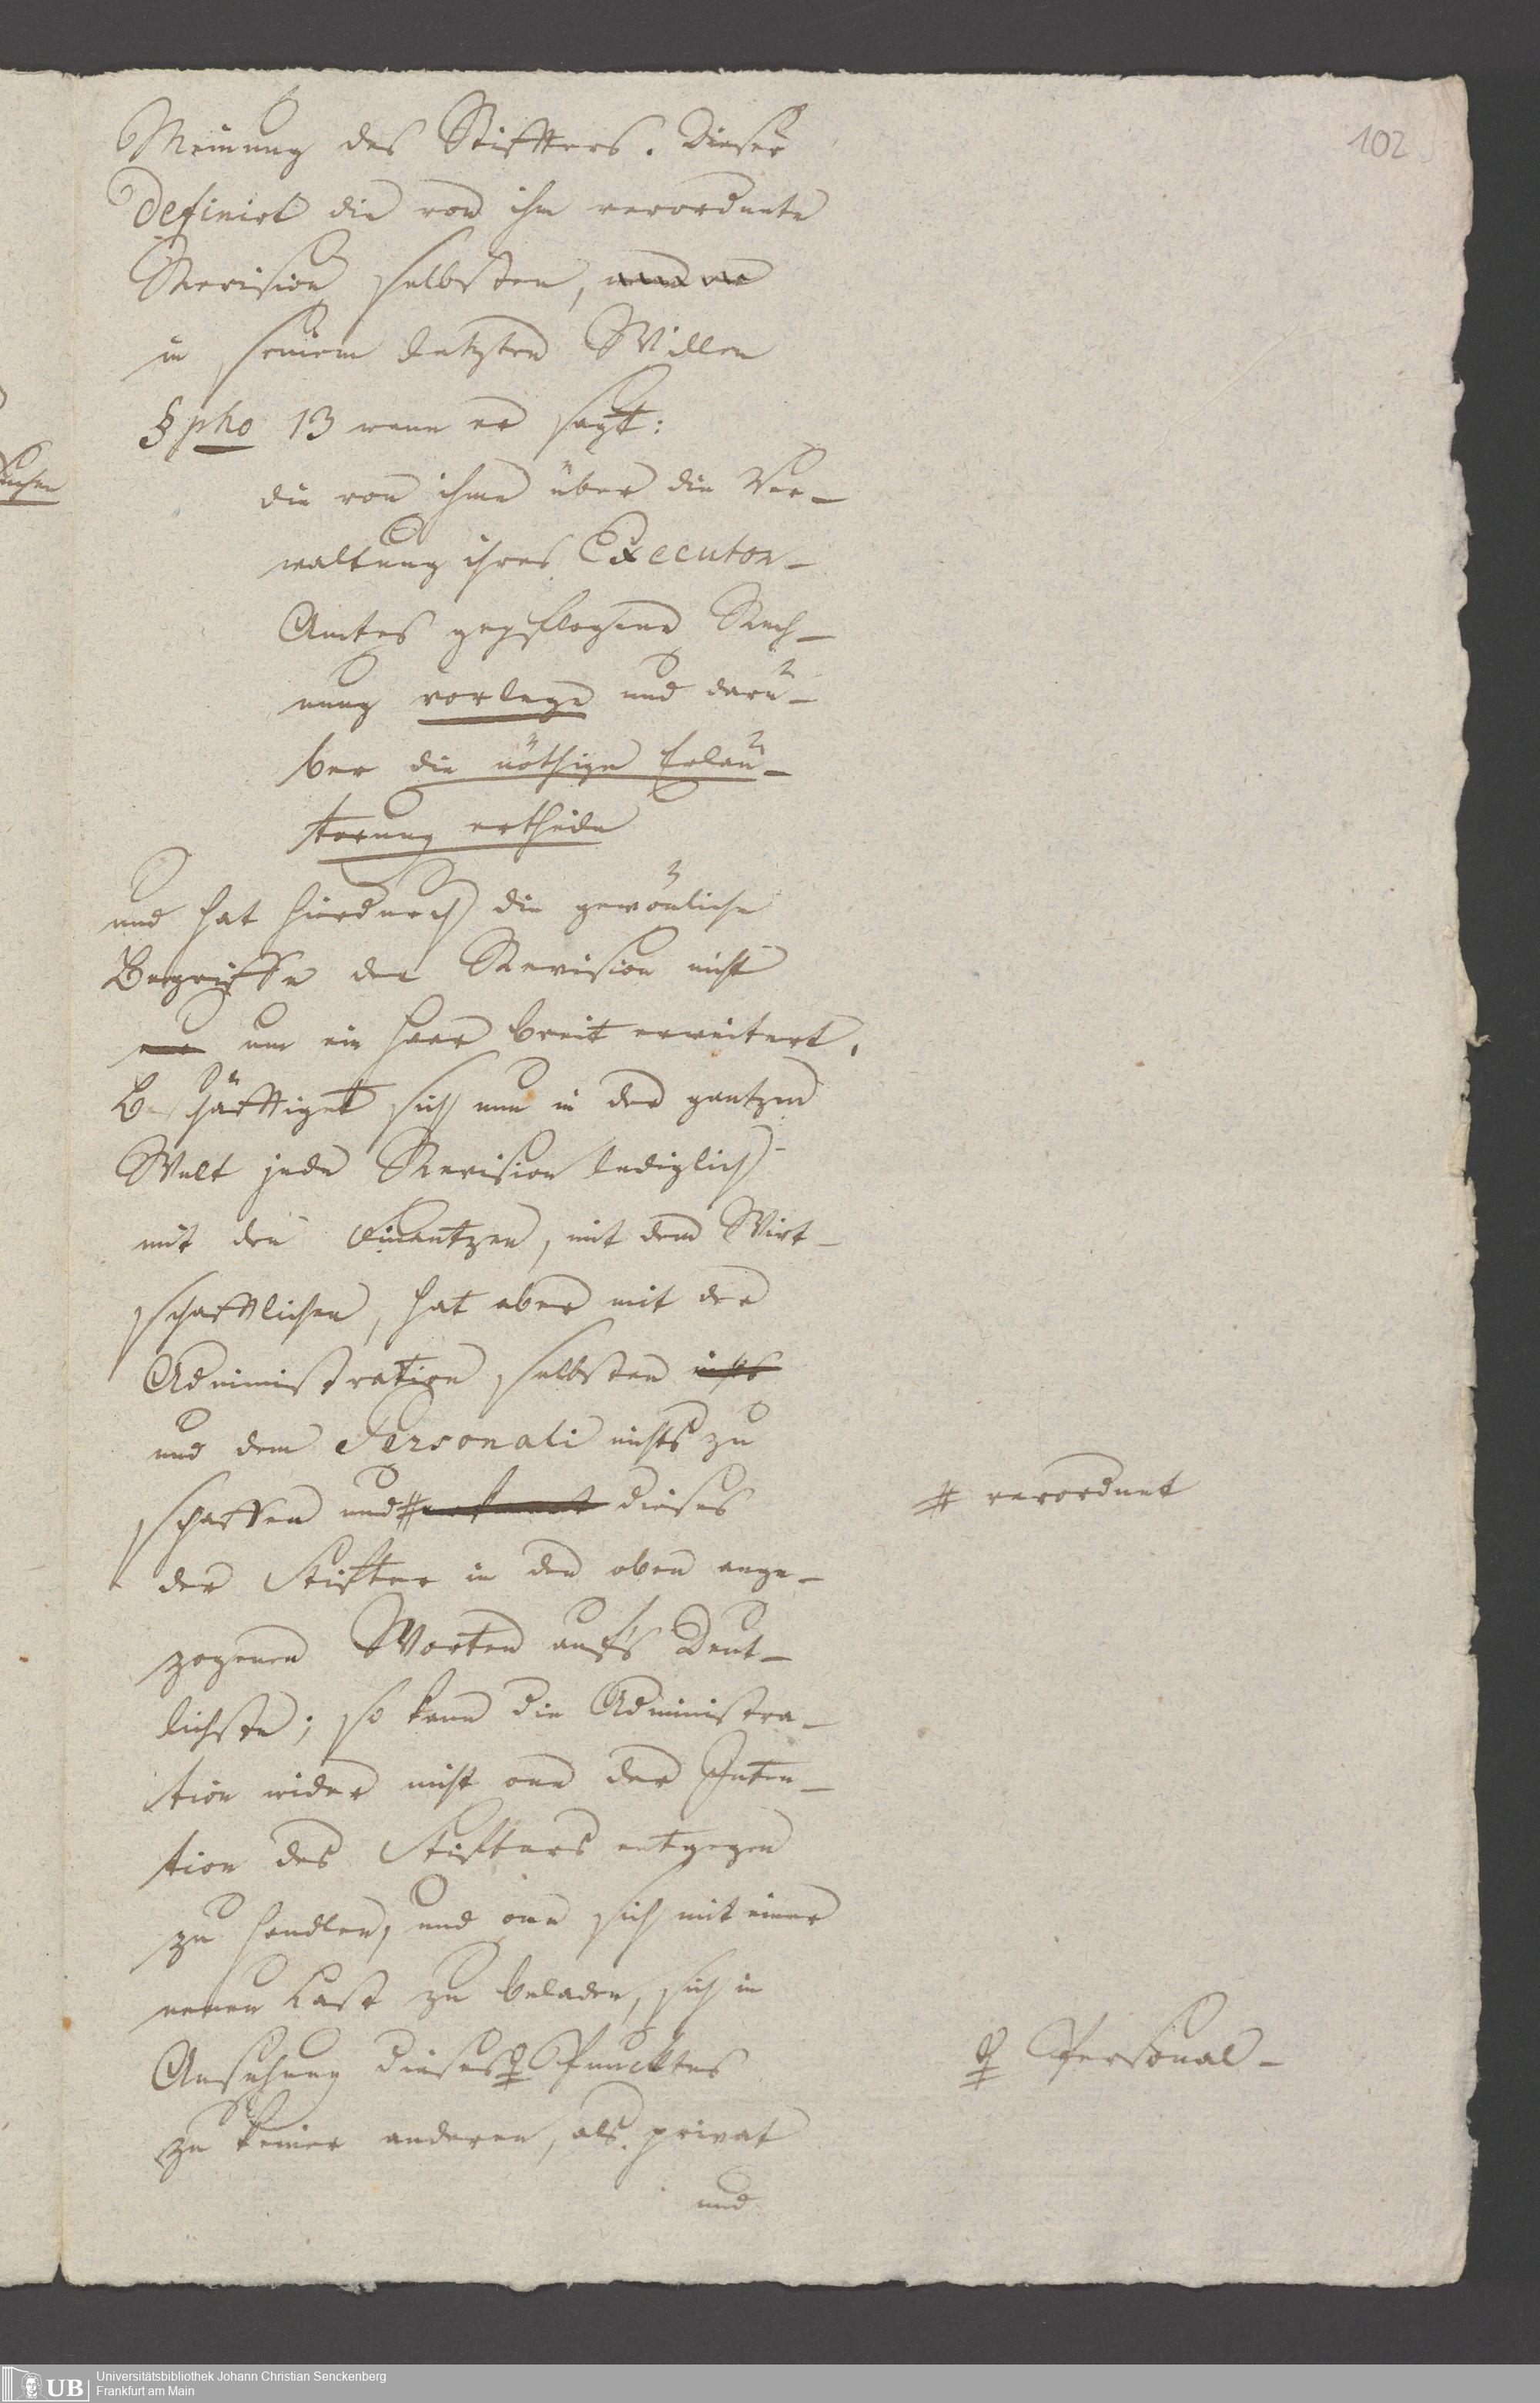 102
Meinung des Stiffters. Dieser
definirt die von ihm verordnete
Revision selbsten,
in seinem letzten Willen
§pho 13 wenn er sagt:
die von ihme über die Ver-
waltung ihres Executor-
Amtes gepflogene Rech-
nung vorlege und darü-
ber die nöthige Erläu-
terung ertheile
und hat hierdurch die gewönliche
Begriffe der Revision nicht
um ein Haar breit erweitert.
Beschäfftiget sich nun in der gantzen
Welt jede Revision lediglich
mit den Finantzen, mit dem Wirt-
schafftlichen, hat aber mit der
Administration selbsten nichts
und dem Personali nichts zu
schaffen und # dieses
# verordnet
der Stifter in den oben ange-
zogenen Worten aufs Deut-
lichste; so kann die Administra-
tion wider nicht one der Inten-
tion des Stifters entgegen
zu handlen, und one sich mit einer
neuen Last zu beladen, sich in
Ansehung dieses Puncktes
Personal-
zu keiner anderen, als privat
und
UB Universitätsbibliothek Johann Christian Senckenberg
Frankfurt am Main